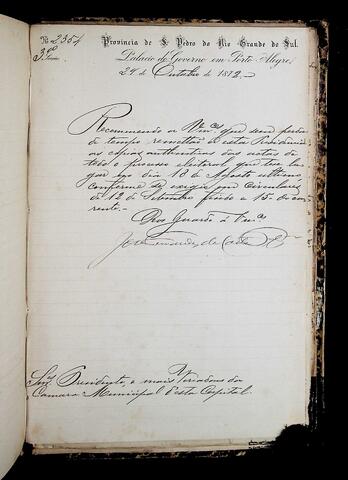 Nº 2354
3ª Secção
Provincia de S. Pedro do Rio Grande do Sul.
Palacio do Governo em Porto Alegre,
29 de Outubro de 1872.
Recommendo a Vmcês que sem perda
de tempo remettão a esta Presidencia
as copias authenticas das actas de
todo o processo eleitoral que teve lu-
gar no dia 18 de Agosto ultimo,
conforme se exigio em circulares
de 12 de Setembro findo e 15 do cor-
rente.
Deus Guarde a Vmcês
José Fernandes da Costa Pª
Snrs. Presidente, e mais Vereadores da
Camara Municipal d'esta Capital.